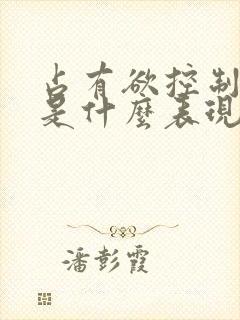 占有欲控制
是什麼表現
潘彭霞